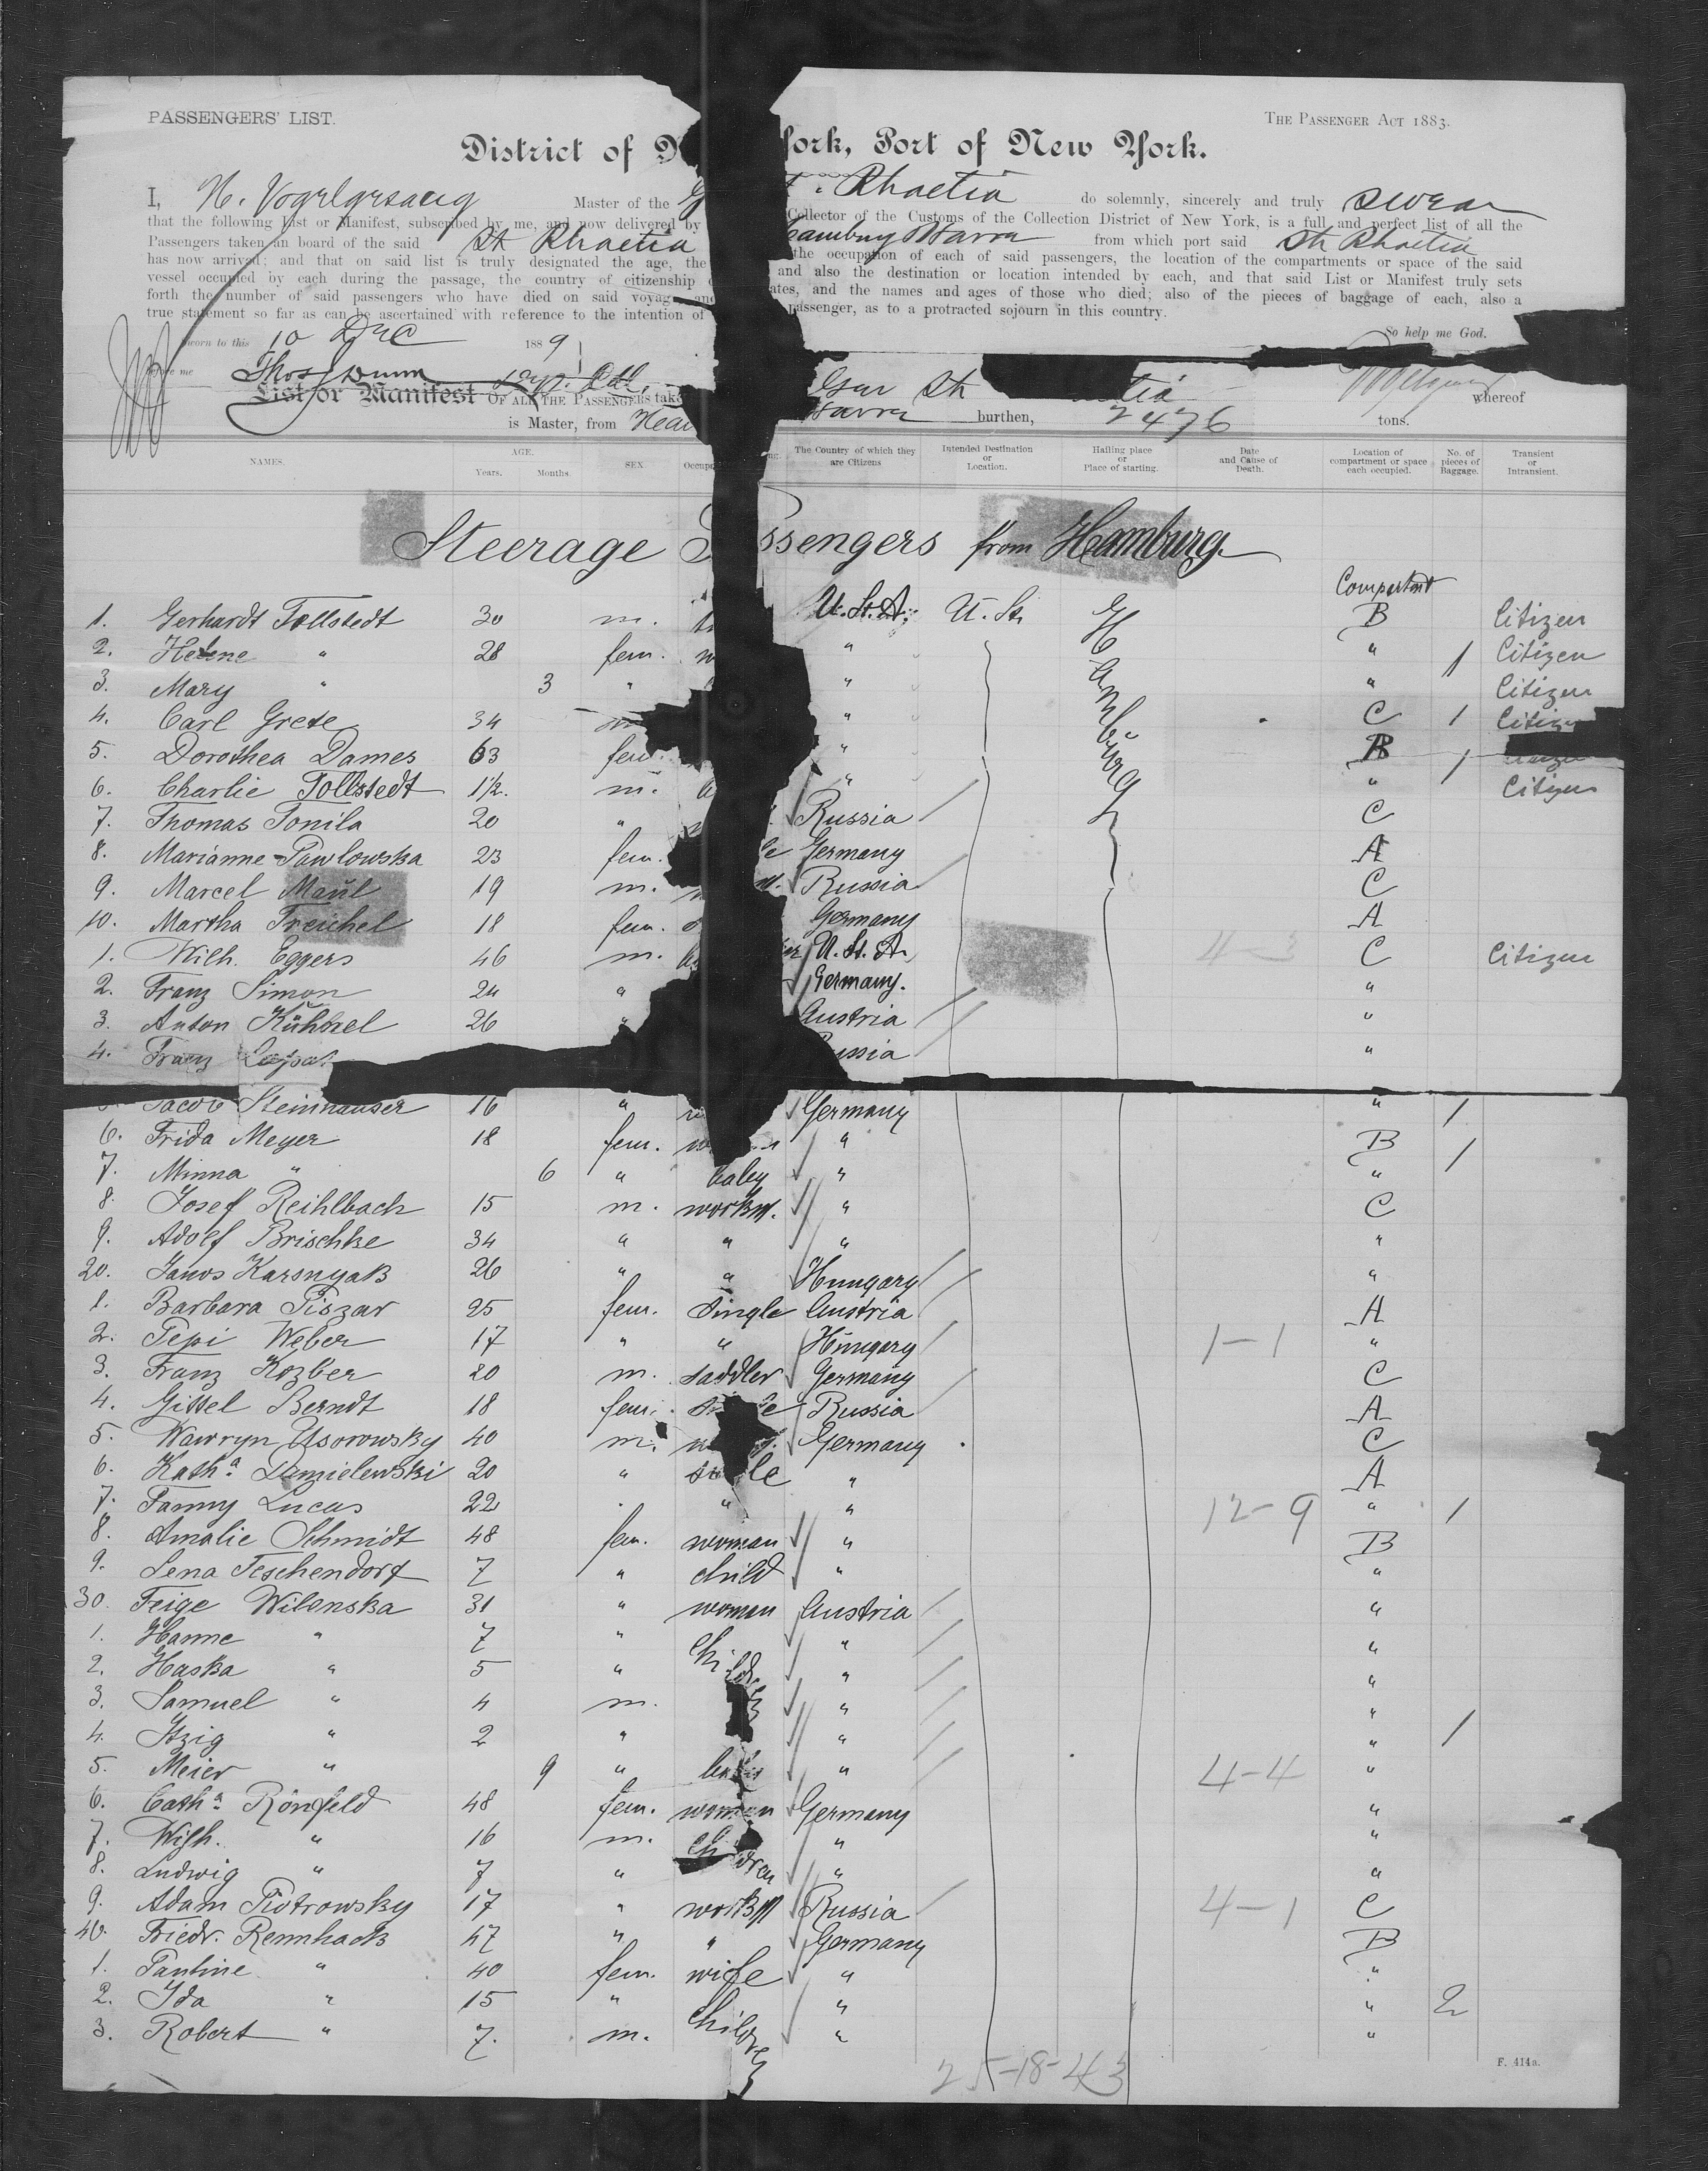 PASSENGERS' LIST. THE PASSENGER ACT 1883.
District of N York, Port of New York.
I, H. Master of the G St. Rhaetia do solemnly, sincerely and truly swear
that the following List or Manifest, subscribed by me, and now delivered by Collector of the Customs of the Collection District of New York, is a full and perfect list of all the
Passengers taken on board of the said St Rhaetia Hamburg Havre from which port said Str Rhaetia
has now arrived; and that on said list is truly designated the age, the the occupation of each of said passengers, the location of the compartments or space of the said
vessel occupied by each during the passage, the country of citizenship and also the destination or location intended by each, and that said List or Manifest truly sets
forth the number of said passengers who have died on said voyage and ates, and the names and ages of those who died; also of the pieces of baggage of each, also a
true statement so far as can be ascertained with reference to the intention of passenger, as to a protracted sojourn in this country.
So help me God.
Sworn to this 10 Dec 1889
me Thos Dunn Dep. Coll.
List or Manifest OF ALL THE PASSENGERS take Ger Str tia whereof
is Master, from Havre burthen, 2476 tons.
NAMES. AGE. Years. Months. SEX. Occup The Country of which they are Citizens Intended Destination or Location. Hailing place or Place of starting. Date and Cause of Death. Location of compartment or space each occupied. No. of pieces of Baggage. Transient or Intransient.
Steerage Passengers from Hamburg
Compartmt
1. Gerhardt Tollstedt 30 m. U.St.A. U.St. Hamburg B Citizen
2. Helene " 28 fem. " " 1 Citizen
3. Mary " 3 " " " Citizen
4. Carl Grete 34 " C 1 Citizen
5. Dorothea Dames 63 fem. " B 1
6. Charlie Tollstedt 1½. m. " " Citizen
7. Thomas Tonila 20 " Russia C
8. Marianne Pawlowska 23 fem. le Germany A
9. Marcel Maŭl 19 m. Russia C
10. Martha Treichel 18 fem. Germany A
1. Wilh. Eggers 46 m. U.St.A. 4-3 C Citizen
2. Franz Simon 24 " Germany. "
3. Anton Kühnel 26 " Austria "
4. Franz ussia "
Jacob Steinhauser 16 " Germany " 1
6. Frida Meyer 18 fem. " B 1
7. Minna " 6 " baby " "
8. Josef Reihlbach 15 m. workm. " C
9. Adolf Brischke 34 " " " "
20. Janos Karsnyak 26 " " Hungary "
1. Barbara Piszar 25 fem. single Austria A
2. Pepi Weber 17 " " Hungary 1-1 "
3. Franz Kozber 20 m. saddler Germany C
4. Gittel Berndt 18 fem. Russia A
5. Wawryn Usorowsky 40 m. Germany C
6. Kath.a Danzielewski 20 " single " A
7. Fanny Lucas 22 " " 12-9 " 1
8. Amalie Schmidt 48 fem. woman " B
9. Lena Teschendorf 7 " child " "
30. Feige Wilenska 31 " woman Austria "
1. Hanne " 7 " Children " "
2. Haska " 5 " " "
3. Samuel " 4 m. " "
4. Itzig " 2 " " " 1
5. Meier " 9 " " 4-4 "
6. Cath.a Rönfeld 48 fem. woman Germany "
7. Wilh. " 16 m. Children " "
8. Ludwig " 7 " " "
9. Adam Piotrowsky 17 " workm Russia 4-1 C
40. Friedr. Rennhack 47 " " Germany B
1. Pauline " 40 fem. wife " "
2. Ida " 15 " Children " " 2
3. Robert " 7. m. " "
25-18-43
F. 414a.